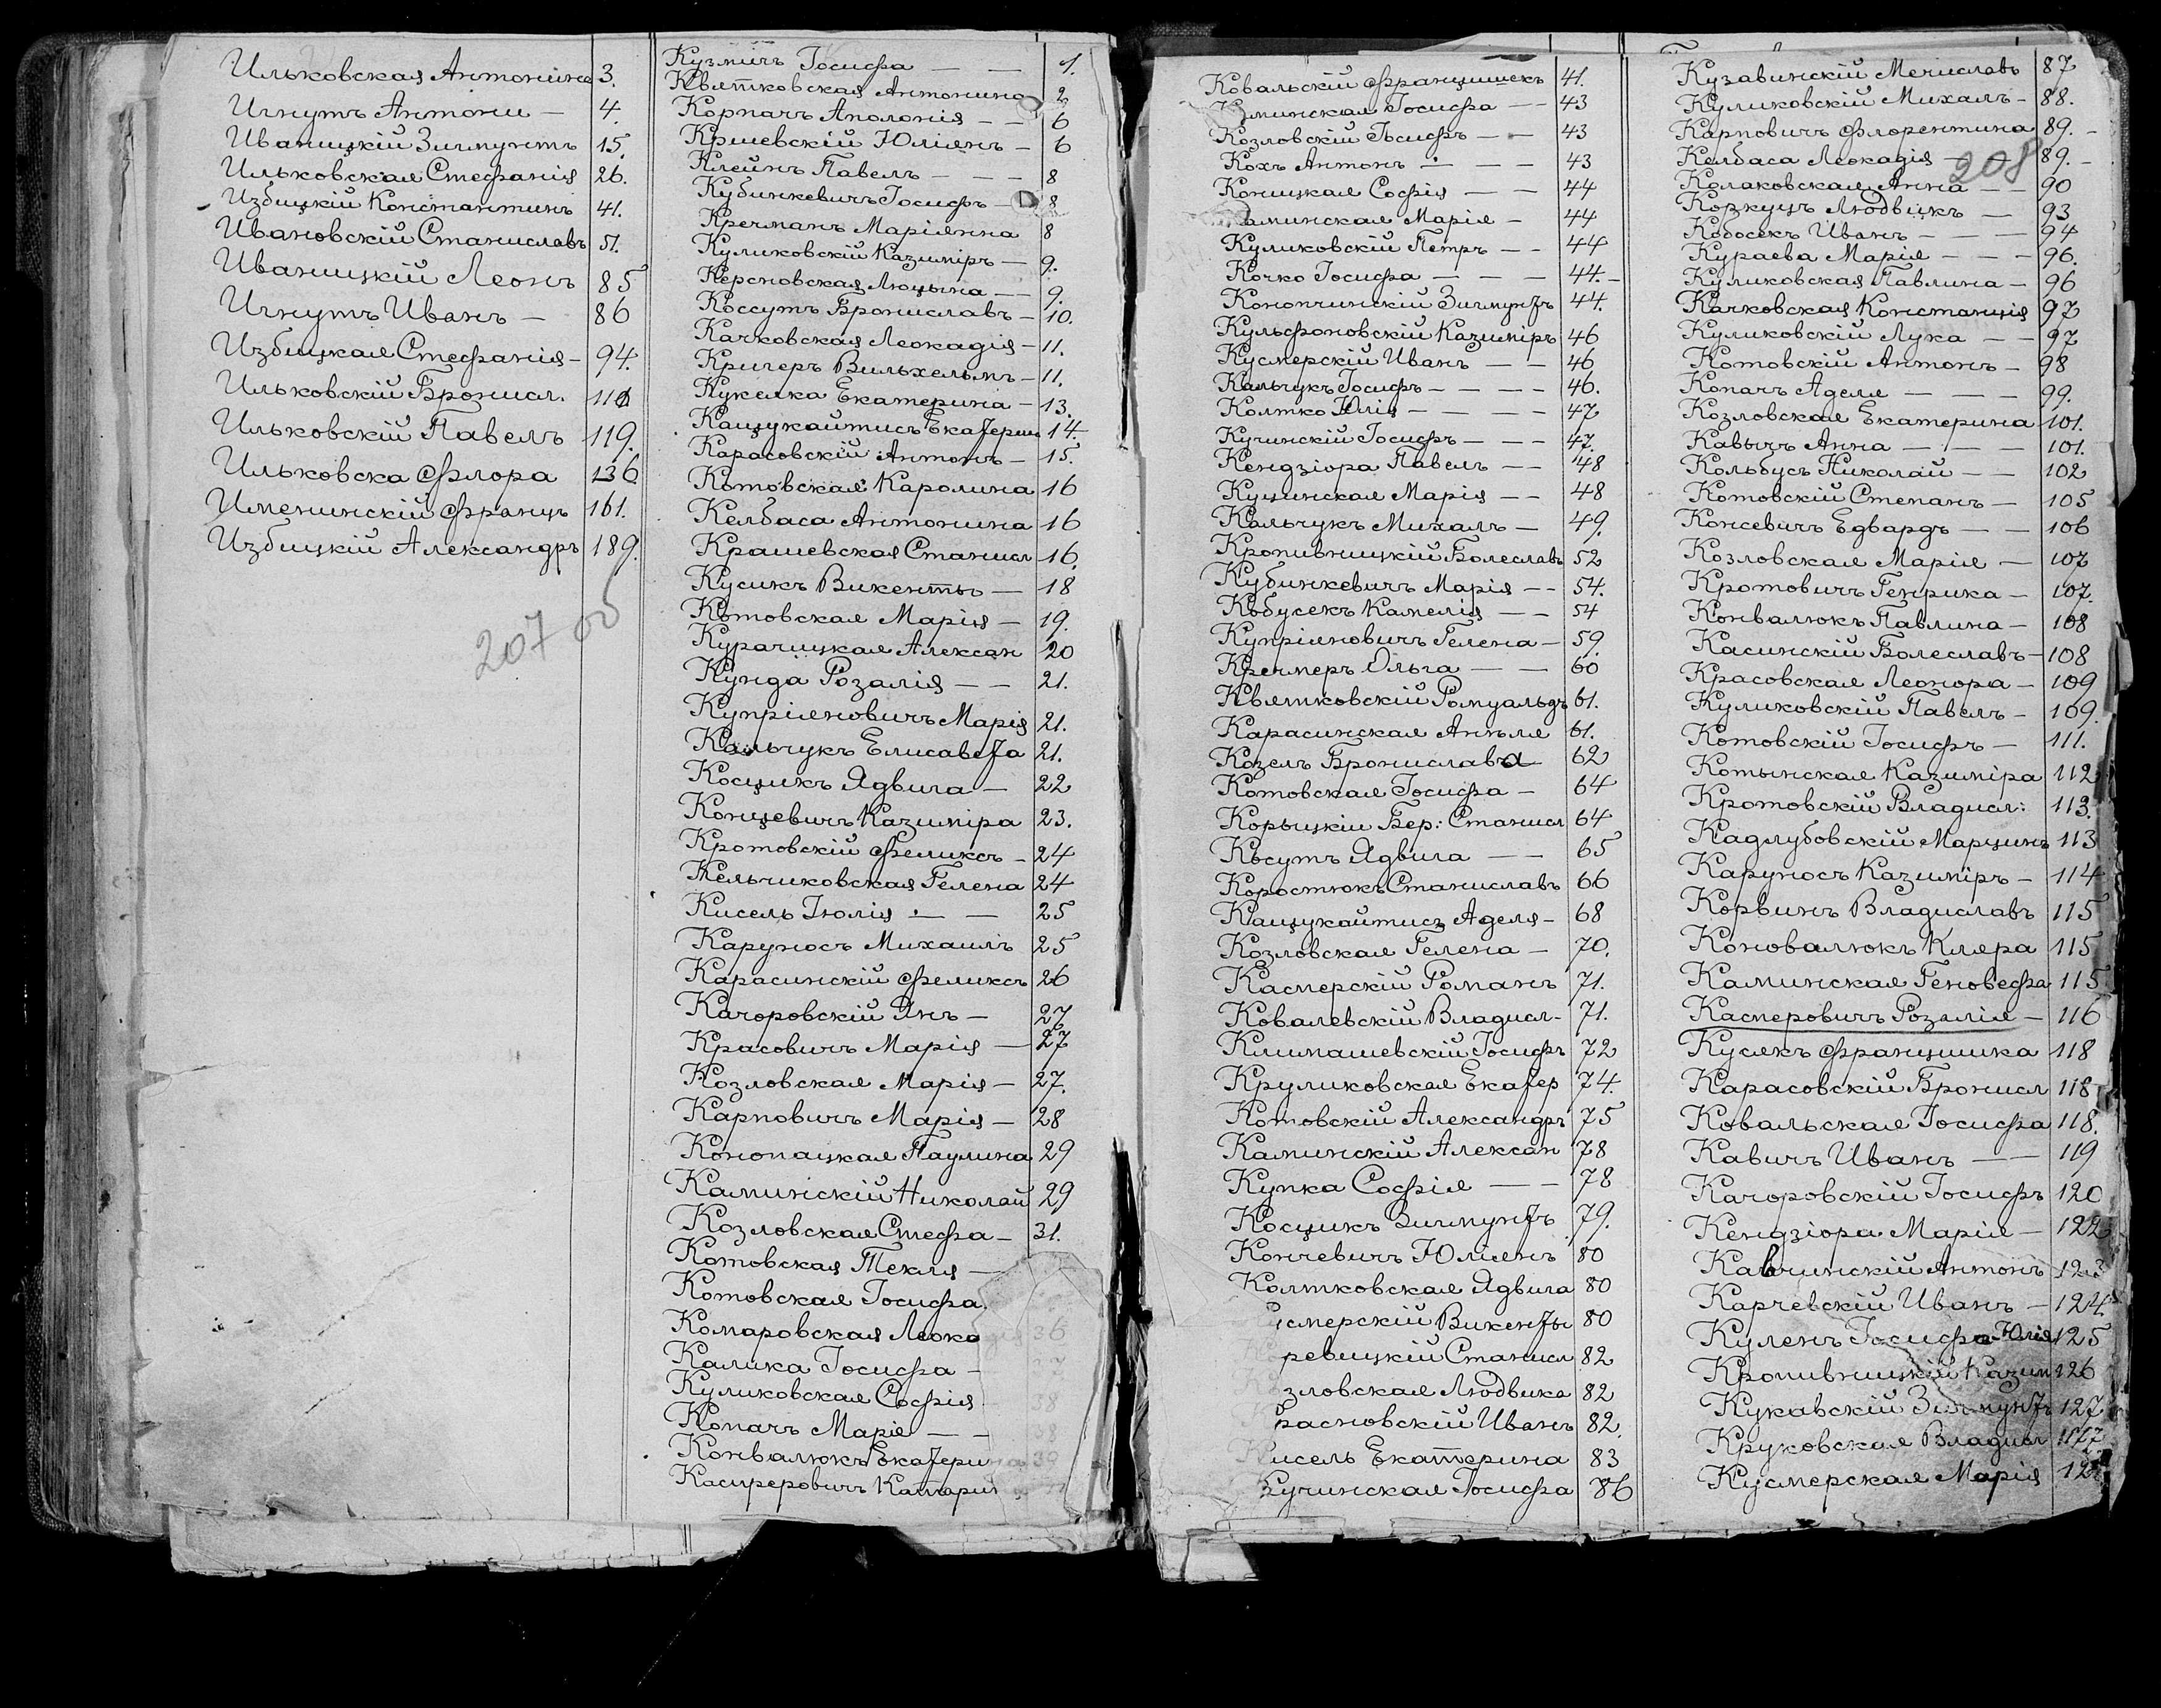 Ильковская Антонина 3.
Игнутъ Антони — 4.
Иваницкій Зигмунтъ 15.
Ильковская Стефанія 26.
Избицкій Константинъ 41.
Ивановскій Станиславъ 51.
Иваницкій Леонъ 85
Игнутъ Иванъ — 86
Избицкая Стефанія — 94.
Ильковскій Бронисл. 111
Ильковскій Павелъ 119.
Ильковска Флора 136
Именинскій Францъ 161.
Избицкій Александръ 189.
207 об
Кузмичъ Іосифа — — 1.
Квятковская Антонина 2
Корпачъ Аполонія — — 6
Кршевскій Юліянъ — 6
Клейнъ Павелъ — — — 8
Кубинкевичъ Іосифъ — 8
Кречманъ Маріянна 8
Куликовскій Казиміръ — 9.
Керсновская Люцына — — 9.
Коссутъ Брониславъ — 10.
Качковская Леокадія — 11.
Кригеръ Вильхельмъ — 11.
Кукелка Екатерина — 13.
Кащукайтисъ Екатерин 14.
Карасовскій Антонъ — 15.
Котовская Каролина 16
Келбаса Антонина 16
Крашевская Станисл 16.
Кусикъ Викенты — 18
Котовская Марія — 19.
Курачицкая Алексан 20
Кунда Розалія — — 21.
Купріяновичъ Марія 21.
Кальчукъ Елисавета 21.
Косцикъ Ядвига — 22
Концевичъ Казиміра 23.
Кротовскій Феликсъ — 24
Кельчиковская Гелена 24
Кисель Іюлія — — 25
Каруносъ Михаилъ 25
Карасинскій Феликсъ 26
Качоровскій Янъ — 27
Красовичъ Марія — 27
Козловская Марія — 27.
Карповичъ Марія — 28
Конопацкая Паулина 29
Каминскій Николай 29
Козловская Стефа — 31.
Котовская Текля —
Котовская Іосифа
Комаровская Леока 36
Калика Іосифа — 37
Куликовская Софія 38
Копачъ Марія — — 38
Конвалюкъ Екатерина 39
Каспреровичъ Катари
Ковальскій Францишекъ 41.
минская Іосифа — — 43
Козловскій Іосифъ — — 43
Кохъ Антонъ — — — 43
Коницкая Софія — — 44
аминская Марія — 44
Куликовскій Петръ — — 44
Кочко Іосифа — — — 44. —
Конопчинскій Зигмунтъ 44.
Кульфоновскій Казиміръ 46
Кусмерскій Иванъ — — 46
Кальчукъ Іосифъ — — — — 46.
Колтко Юлія — — — — 47
Кучинскій Іосифъ — — — 47.
Кендзіора Павелъ — — 48
Куцинская Марія — — 48
Кальчукъ Михалъ — 49.
Кропивницкій Болеславъ 52
Кубинкевичъ Марія — — 54.
Кобусекъ Камелія — — 54
Купріяновичъ Гелена — 59.
Кремперъ Ольга — — 60
Квятковскій Ромуальдъ 61.
Карасинская Анеля 61.
Козелъ Бронислава 62
Котовская Іосифа — 64
Корыцкіи Бер: Станисл 64
Косутъ Ядвига — — 65
Коростюкъ Станиславъ 66
Кащукайтисъ Аделя — 68
Козловская Гелена — 70.
Касперскій Романъ 71.
Ковалевскій Владисл — 71.
Климашевскій Іосифъ 72
Круликовская Екатер 74.
Котовскій Александръ 75
Каминскій Алексан 78
Купка Софія — — 78
Косцикъ Зигмунтъ 79.
Кончевичъ Юліянъ 80
Колтковская Ядвига 80
смерскій Викенты 80
ревицкій Станисл 82
зловская Людвика 82
расновскій Иванъ 82.
исель Екатерина 83
Кучинская Іосифа 86
Кузавинскій Мечиславъ 87
Куликовскій Михалъ — 88.
Карповичъ Флорентина 89. —
Келбаса Леокадія — — 89. —
208
Колаковская Анна — — 90
Коркуцъ Людвикъ — 93
Кобосекъ Иванъ — — — 94
Кураева Марія — — — 96.
Куликовская Павлина — 96
Качковская Констанція 97
Куликовскій Лука — — 97
Котовскій Антонъ — 98
Копачъ Аделя — — — 99.
Козловская Екатерина 101.
Кавычъ Анна — — — 101.
Кольбусъ Николай — — 102
Котовскій Степанъ — 105
Консевичъ Едвардъ — — 106
Козловская Марія — 107
Кротовичъ Генрика — 107.
Конвалюкъ Павлина — 108
Касинскій Болеславъ — 108
Красовская Леонора — 109
Куликовскій Павелъ — 109.
Котовскій Іосифъ — 111.
Котынская Казиміра 112
Кротовскій Владисл: 113.
Кадлубовскій Марцинъ 113
Каруносъ Казиміръ — 114
Корвинъ Владиславъ 115
Коновалюкъ Кляра 115
Каминская Геновефа 115
Касперовичъ Розалія — 116
Кусякъ Францишка 118
Карасовскій Бронисл 118
Ковальская Іосифа 118.
Кавичъ Иванъ — — 119
Качоровскій Іосифъ 120
Кендзіора Марія — 122
Кавчинскій Антонъ 123
Карчевскій Иванъ — 124
Куленъ Іосифа Юлія 125
Кропивницкій Казим 126
Кукавскій Зигмунтъ 127
Круковская Владисл 127.
Кусмерская Марія